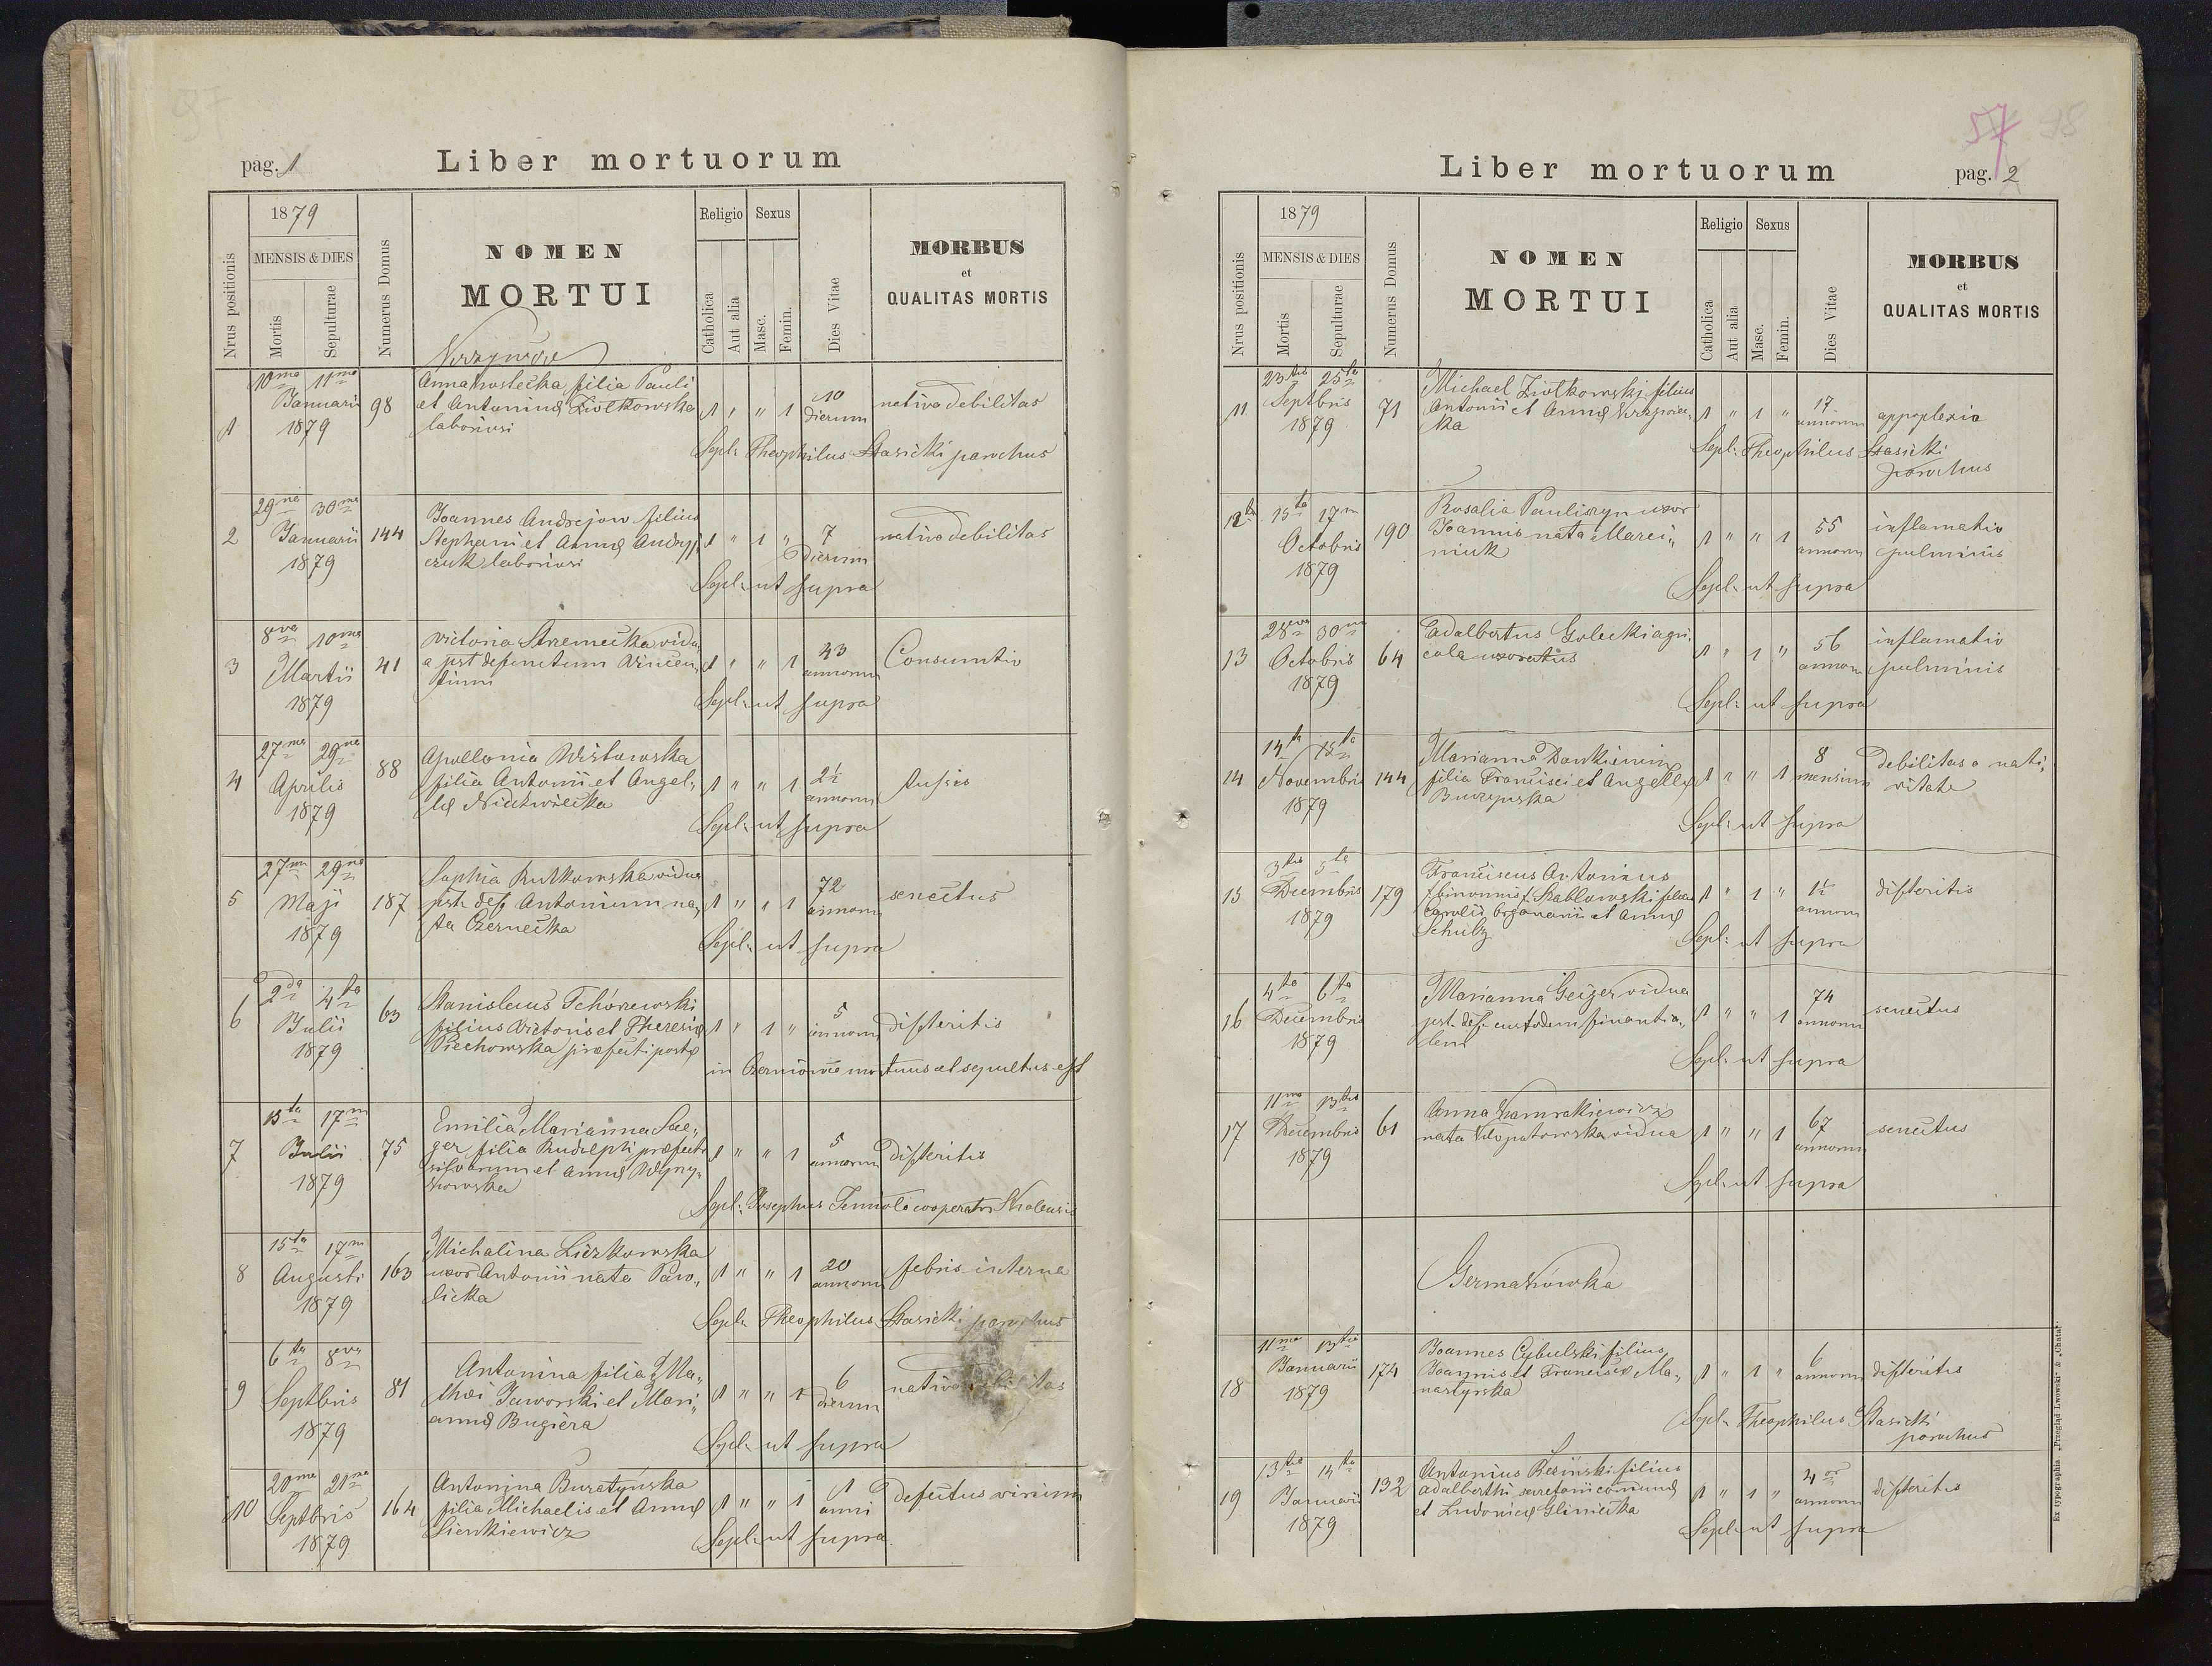 97
pag. 1
Liber mortuorum
1879
MENSIS & DIES
Nrus positionis
Mortis
Sepulturae
Numerus Domus
NOMEN
MORTUI
Religio
Catholica
Aut alia
Sexus
Masc.
Femin.
Dies Vitae
MORBUS
et
QUALITAS MORTIS
1 10ma 11ma Januarii 1879 98
Anna filia Pauli
et Antoninę Ziolkowska
laboriosi
1 " " 1 10 dierum nativa debilitas
Sepl: Theophilus Stasicki parochus
2 29na 30ma Januarii 1879 144
Joannes Andrejow filius
Stephani et Annę Andryj
czuk laboriosi
1 " 1 " 7 dierum nativa debilitas
Sepl: ut supra
3 8va 10ma Martii 1879 41
Victoria Strzemecka vidu
a pst defunctum Vincen
tium
1 " " 1 43 annorum Consumtio
Sepl: ut supra
4 27ma 29na Aprilis 1879 88
Apollonia Wisłowska
filia Antonii et Angel„
lę Niedzwiecka
1 " " 1 2½ annorum tussis
Sepl: ut supra
5 27ma 29na Maji 1879 187
Sophia Rutkowska vidua
pst. def. Antonium na„
ta Czernecka
1 " " 1 72 annorum senectus
Sepl: ut supra
6 2da 4ta Julii 1879 63
Stanislaus Tchórzewski
filius Victoris et Theresię
Piechowska præfecti postę
1 " 1 " 5 annorum difteritis
in Czerniowie mortuus et sepultus est
7 15ta 17ma Julii 1879 75
Emilia Marianna Sae„
ger filia Rudolphi præfecti
silvarum et Annę
1 " " 1 5 annorum difteritis
Sepl: Josephus cooperator Skalensis
8 15ta 17ma Augusti 1879 163
Michalina Liczkowska
uxor Antonii nata Paw„
licka
1 " " 1 20 annorum febris interna
Sepl: Theophilus Stasicki parochus
9 6ta 8va Septbris 1879 81
Antonina filia Ma„
thæi Jaworski et Mari„
annę Bugiera
1 " " 1 6 dierum nativa debilitas
Sepl: ut supra
10 20ma 21ma Septbris 1879 164
Antonina Buratyńska
filia Michaelis et Annę
Sienkiewicz
1 " " 1 1 anni defectus virium
Sepl: ut supra
57 98
Liber mortuorum
pag. 2
1879
MENSIS & DIES
Nrus positionis
Mortis
Sepulturae
Numerus Domus
NOMEN
MORTUI
Religio
Catholica
Aut alia
Sexus
Masc.
Femin.
Dies Vitae
MORBUS
et
QUALITAS MORTIS
11 23tia 25ta Septbris 1879 71
Michael Ziolkowski filius
Antonii et Annę
ka
1 " 1 " 17 annorum appoplexia
Sepl: Theophilus Stasicki
parochus
12 15ta 17ma Octobris 1879 190
Rosalia Pauliszyn uxor
Joannis nata Marci„
niuk
1 " " 1 55 annorum inflamatio
pulminis
Sepl: ut supra
13 28va 30ma Octobris 1879 64
Adalbertus Golecki agri„
cola uxoratus
1 " 1 " 56 annorum inflamatio
pulminis
Sepl: ut supra
14 14ta 15ta Novembris 1879 144
Marianna Dankiewicz
filia Francisci et Angellę
Buczyńska
1 " " 1 8 mensium debilitas a nati„
vitate
Sepl: ut supra
15 3tia 5ta Decembris 1879 179
Franciscus Antonius
/binomius/ Szablowski filius
Caroli organarii et Annę
Schulz
1 " 1 " 1½ annorum difteritis
Sepl: ut supra
16 4ta 6ta Decembris 1879
Marianna Geiger vidua
pst. def. custodem finantia„
lem
1 " " 1 74 annorum senectus
Sepl: ut supra
17 11ma 13tia Decembris 1879 61
Anna
nata vidua
1 " " 1 67 annorum senectus
Sepl: ut supra
Germakówka
18 11ma 13tia Januarii 1879 174
Joannes Cybulski filius
Joannis et Franciscę Ma„
nastyrska
1 " 1 " 6 annorum difteritis
Sepl: Theophilus Stasicki
parochus
19 13tia 14ta Januarii 1879 132
Antonius filius
Adalberthi secretarii comunę
et Ludovicę Gliniecka
1 " 1 " 4or annorum difteritis
Sepl: ut supra
Ex typographia „Przegląd Lwowski" & „Chata"